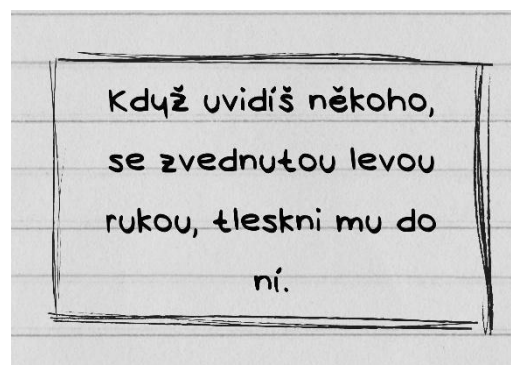 Když uvidíš někoho,
se zvednutou levou
rukou, tleskni mu do
ní.